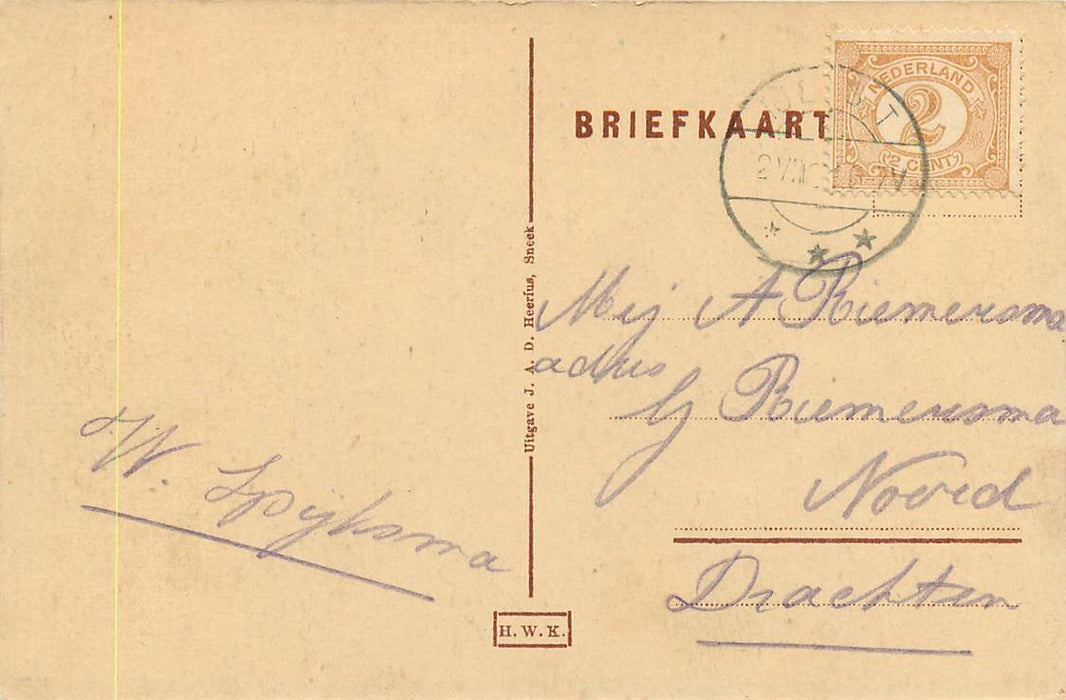 BRIEFKAART
NEDERLAND
2
2 CENT
Uitgave J. A. D. Heerius, Sneek
Mej A Riemersma
adres
Riemersma
Noord
Drachten
W. Spijksma
H. W. K.